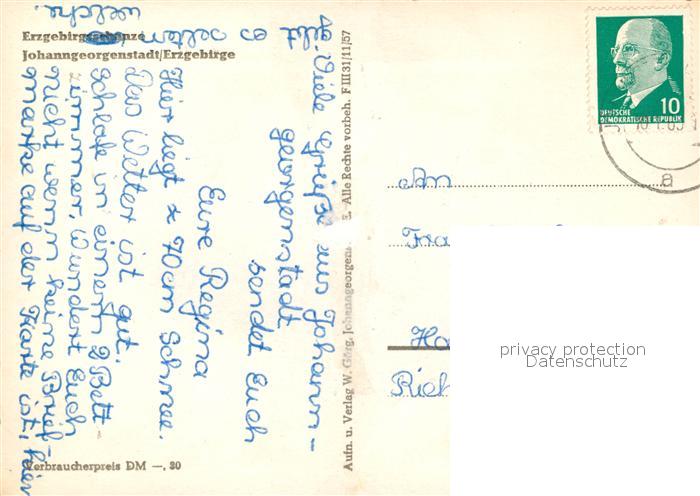 Erzgebirgsschanze
Johanngeorgenstadt/Erzgebirge
Viele Grüße aus Johann-
georgenstadt
sendet Euch
Eure Regina
Hier liegt 70 cm Schnee.
Das Wetter ist gut.
Schlafe in einem 2 Bett-
zimmer. Wundert Euch
nicht wenn keine Brief-
marke auf der Karte ist, hier
gibt es selten
welche.
Verbraucherpreis DM —, 20
Aufn. u. Verlag W. Görg, Johanngeorgens E. - Alle Rechte vorbeh. F III 31/11/57
10
DEUTSCHE
DEMOKRATISCHE REPUBLIK
a
An
Fra
Ha
Rich
privacy protection
Datenschutz